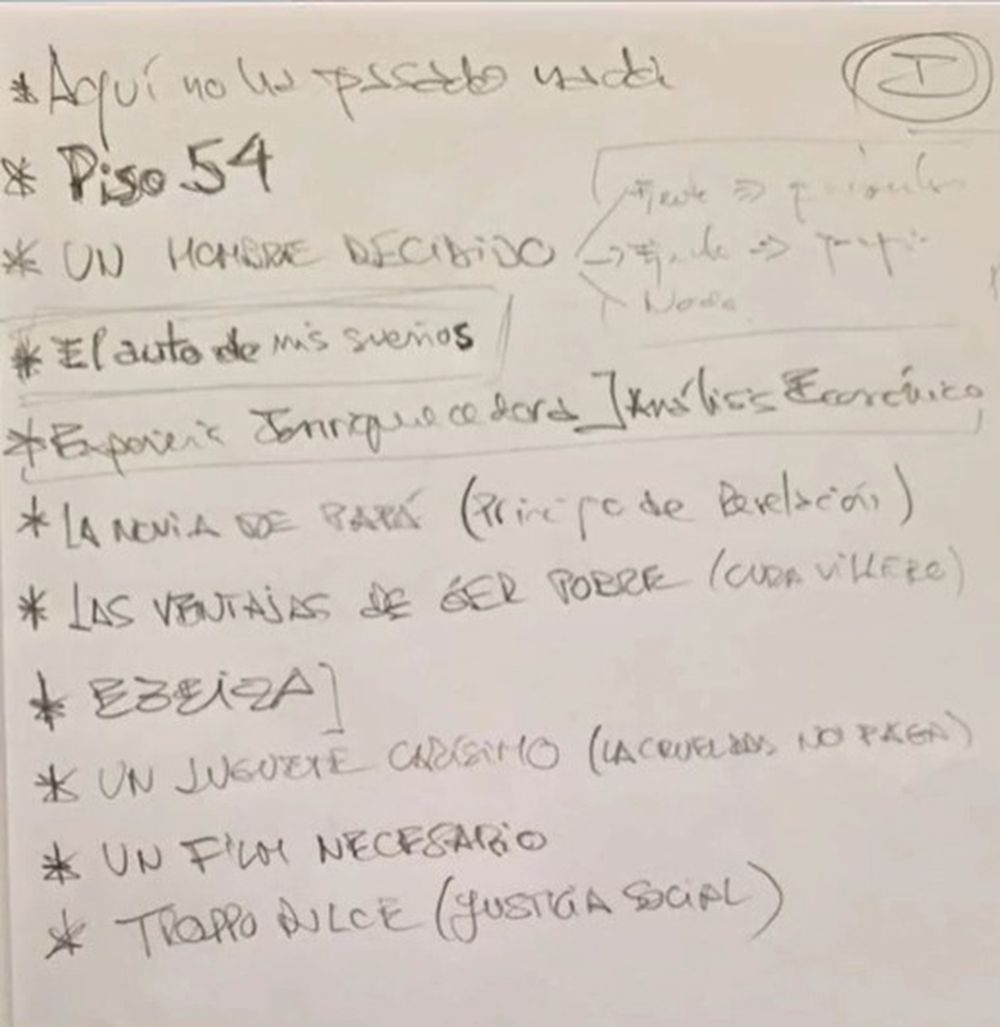 * Aquí no ha pasado nada
I
* Piso 54
* UN HOMBRE DECIDIDO
Nada
* El auto de mis sueños
* Experiencia Enriquecedora ] Análisis Económico
* LA NOVIA DE PAPÁ (Principio de Revelación)
* LAS VENTAJAS DE SER POBRE (CURA VILLERO)
* EZEIZA ]
* UN JUGUETE CARÍSIMO (LA CRUELDAD NO PAGA)
* UN FILM NECESARIO
* TROPPO DULCE (JUSTICIA SOCIAL)